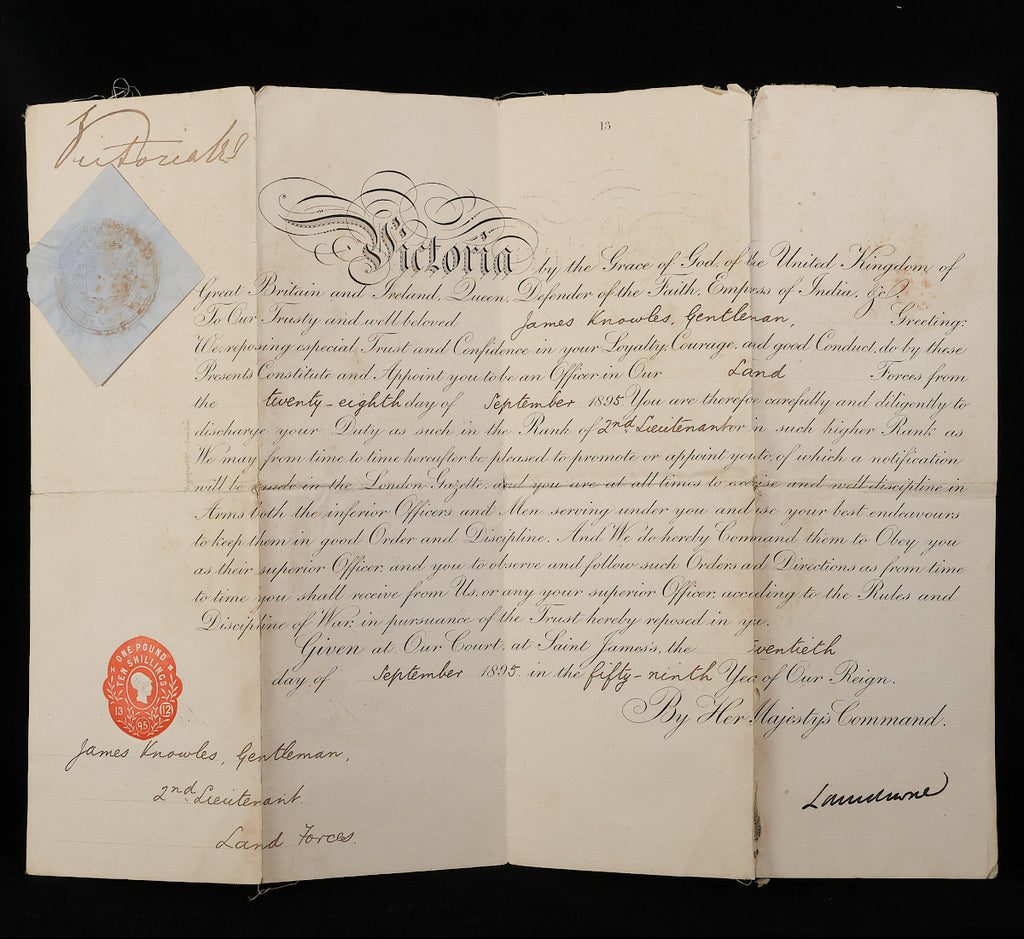 Victoria R I
13
Victoria by the Grace of God, of the United Kingdom of
Great Britain and Ireland, Queen, Defender of the Faith, Empress of India, &c.
To Our Trusty and well beloved James Knowles, Gentleman, Greeting:
We, reposing especial Trust and Confidence in your Loyalty, Courage, and good Conduct, do by these
Presents Constitute and Appoint you to be an Officer in Our Land Forces from
the twenty-eighth day of September 1895 You are therefore carefully and diligently to
discharge your Duty as such in the Rank of 2nd Lieutenant or in such higher Rank as
We may from time to time hereafter be pleased to promote or appoint you to, of which a notification
will be made in the London Gazette, and you are at all times to exercise and well discipline in
Arms both the inferior Officers and Men serving under you and use your best endeavours
to keep them in good Order and Discipline. And We do hereby Command them to Obey you
as their superior Officer, and you to observe and follow such Orders and Directions as from time
to time you shall receive from Us, or any your superior Officer, according to the Rules and
Discipline of War, in pursuance of the Trust hereby reposed in you.
Given at Our Court, at Saint James's, the twentieth
day of September 1895 in the fifty-ninth Year of Our Reign.
By Her Majesty's Command.
ONE POUND
TEN SHILLINGS
13 12
95
James Knowles, Gentleman,
2nd Lieutenant.
Land Forces.
Lansdowne